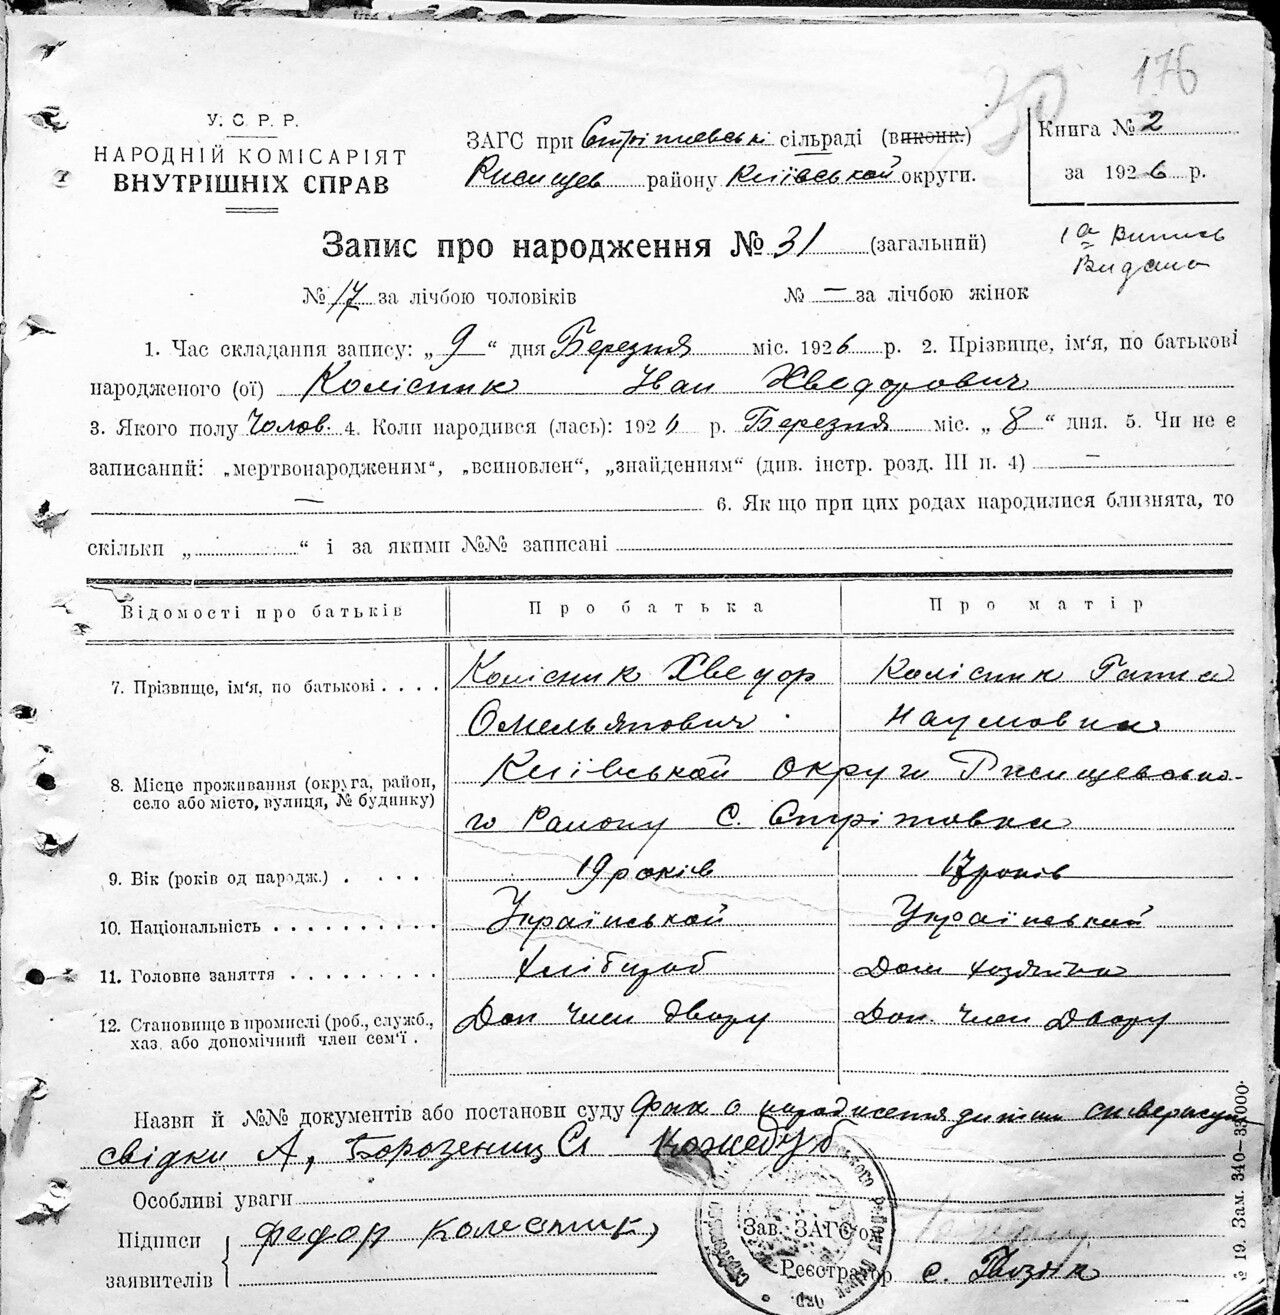 176
30
У. С. Р. Р.
НАРОДНІЙ КОМІСАРІЯТ
ВНУТРІШНІХ СПРАВ
ЗАГС при Стрітевські сільраді (виконк.)
Ржищев району Київської округи.
Книга № 2
за 1926 р.
Запис про народження № 31 (загальний)
1а Випись
Видано
№ 17 за лічбою чоловіків № — за лічбою жінок
1. Час складання запису: „ 9 “ дня Березня міс. 1926 р. 2. Прізвище, ім'я, по батькові
народженого (ої) Колісник Іван Хведорович
3. Якого полу Чолов. 4. Коли народився (лась): 1926 р. Березня міс. „ 8 “ дня. 5. Чи не є
записаний: „мертвонародженим“, „всиновлен“, „знайденням“ (див. інстр. розд. III п. 4) —
— 6. Як що при цих родах народилися близнята, то
скільки „ “ і за якими №№ записані
Відомості про батьків Про батька Про матір
7. Прізвище, ім'я, по батькові . . . . Колісник Хведор Колісник Гапка
Омельянович Наумовна
8. Місце проживання (округа, район, село або місто, вулиця, № будинку) Київської округи Ржищевсько-
го Району С. Стрітовка
9. Вік (років од народж.) . . . . . 19 років 17 років
10. Національність . . . . . . . . . . Української Української
11. Головне заняття . . . . . . . . . Хлібороб Дом хозяйка
12. Становище в промислі (роб., служб., хаз. або допомічний член сем'ї . Доп Член двору Доп. Член Двору
Назви й №№ документів або постанови суду Факт о народження дитини
свідки А, Борозенищ Сл Кожедуб
Особливі уваги
Підписи заявителів Федор Колесник
Зав. ЗАГС'ом
Реєстратор с. Гвоздик
№ 19. Зам. 340—33.000.